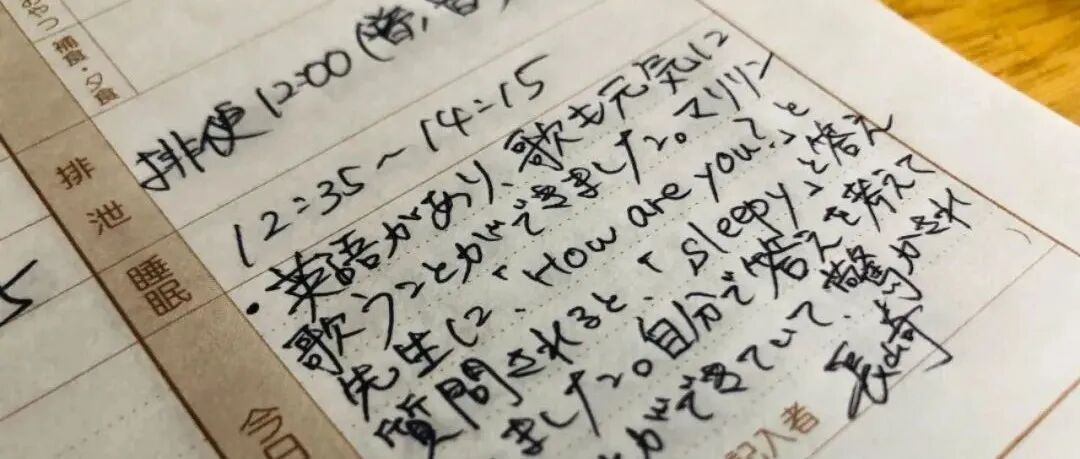 補食・夕食
排便 12:00 (普,
排泄
12:35〜14:15
睡眠
・英語があり、歌も元気に
歌うことができました。マリリン
先生に、「How are you?」と
質問されると、「sleepy」と答え
ました。自分で答えを考えて
ができていて、驚かされ
今日
記入者 長崎
5